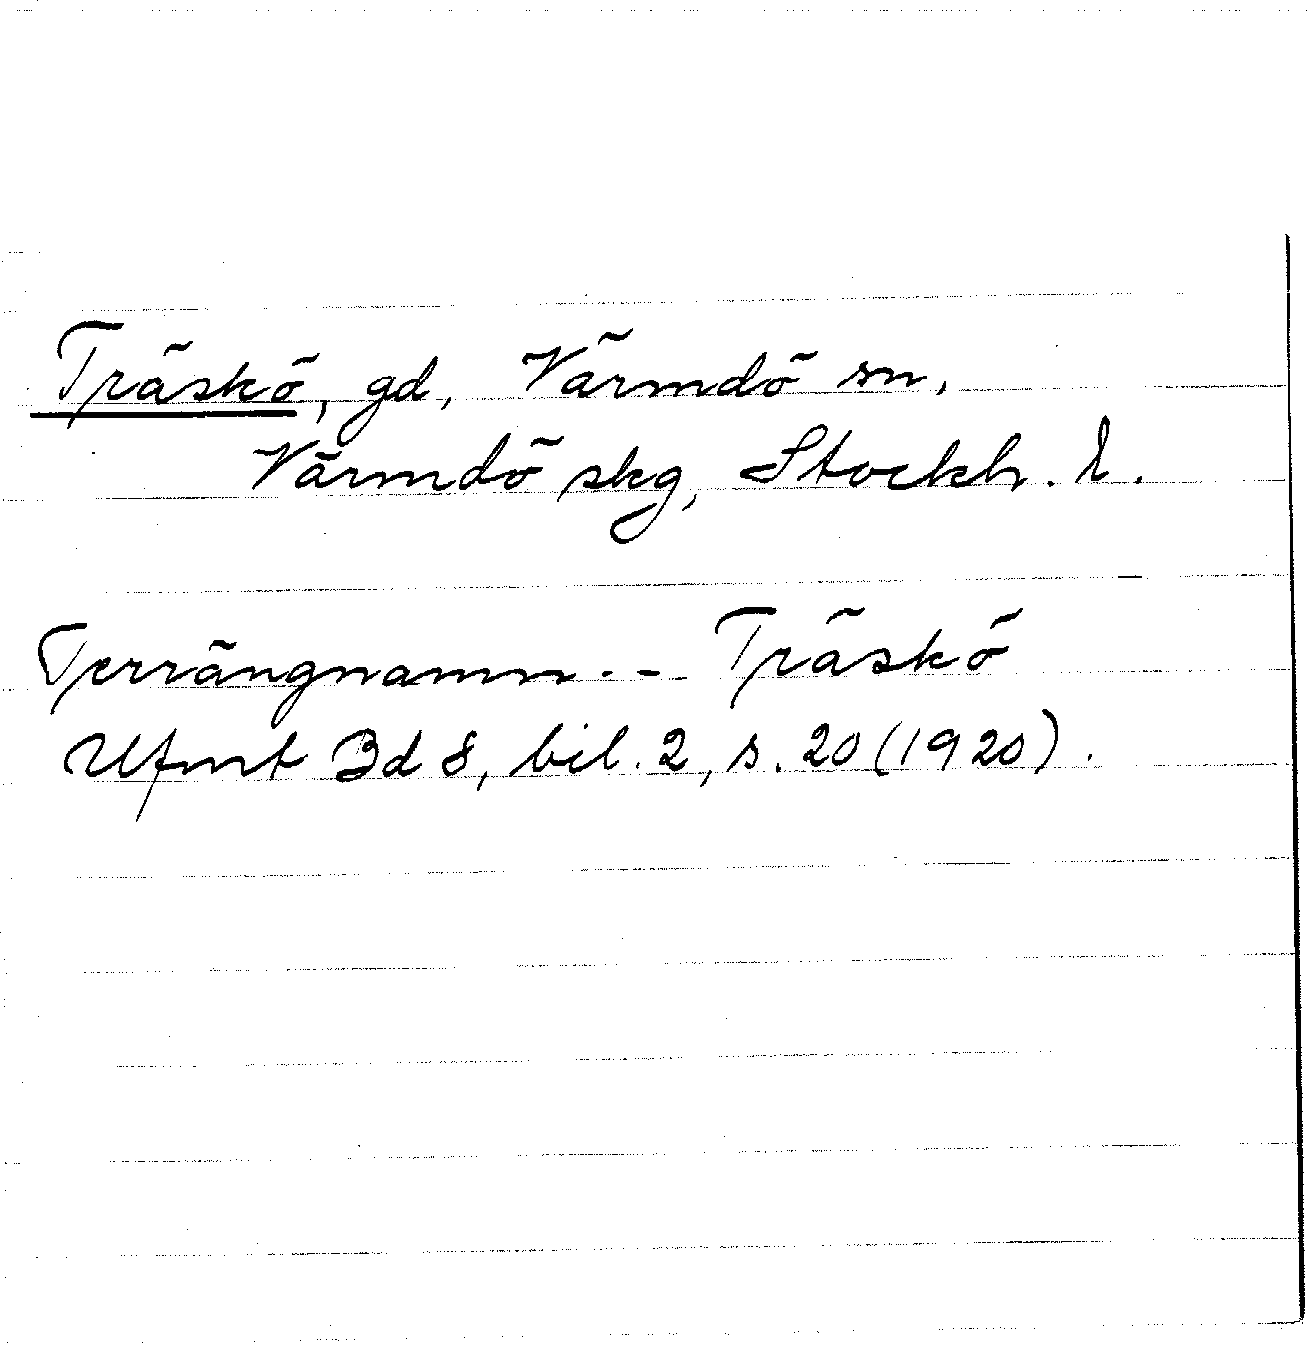 Träskö, gd, Värmdö sn,
Värmdö skg, Stockh. l.
Terrängnamn. - - Träskö
Ufmt Bd 8, bil. 2, s. 20 (1920).